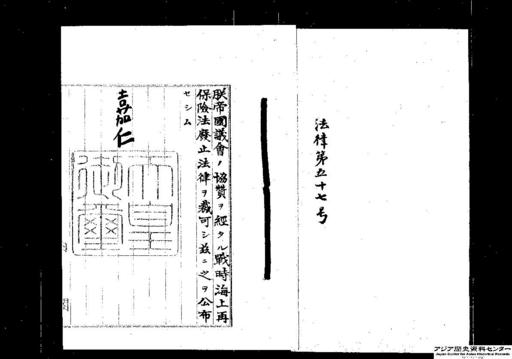 法律第五十七号
朕帝國議會ノ協賛ヲ經タル戰時海上再
保險法廢止法律ヲ裁可シ茲ニ之ヲ公布
セシム
嘉仁
天皇
御璽
内閣
アジア歴史資料センター
Japan Center for Asian Historical Records